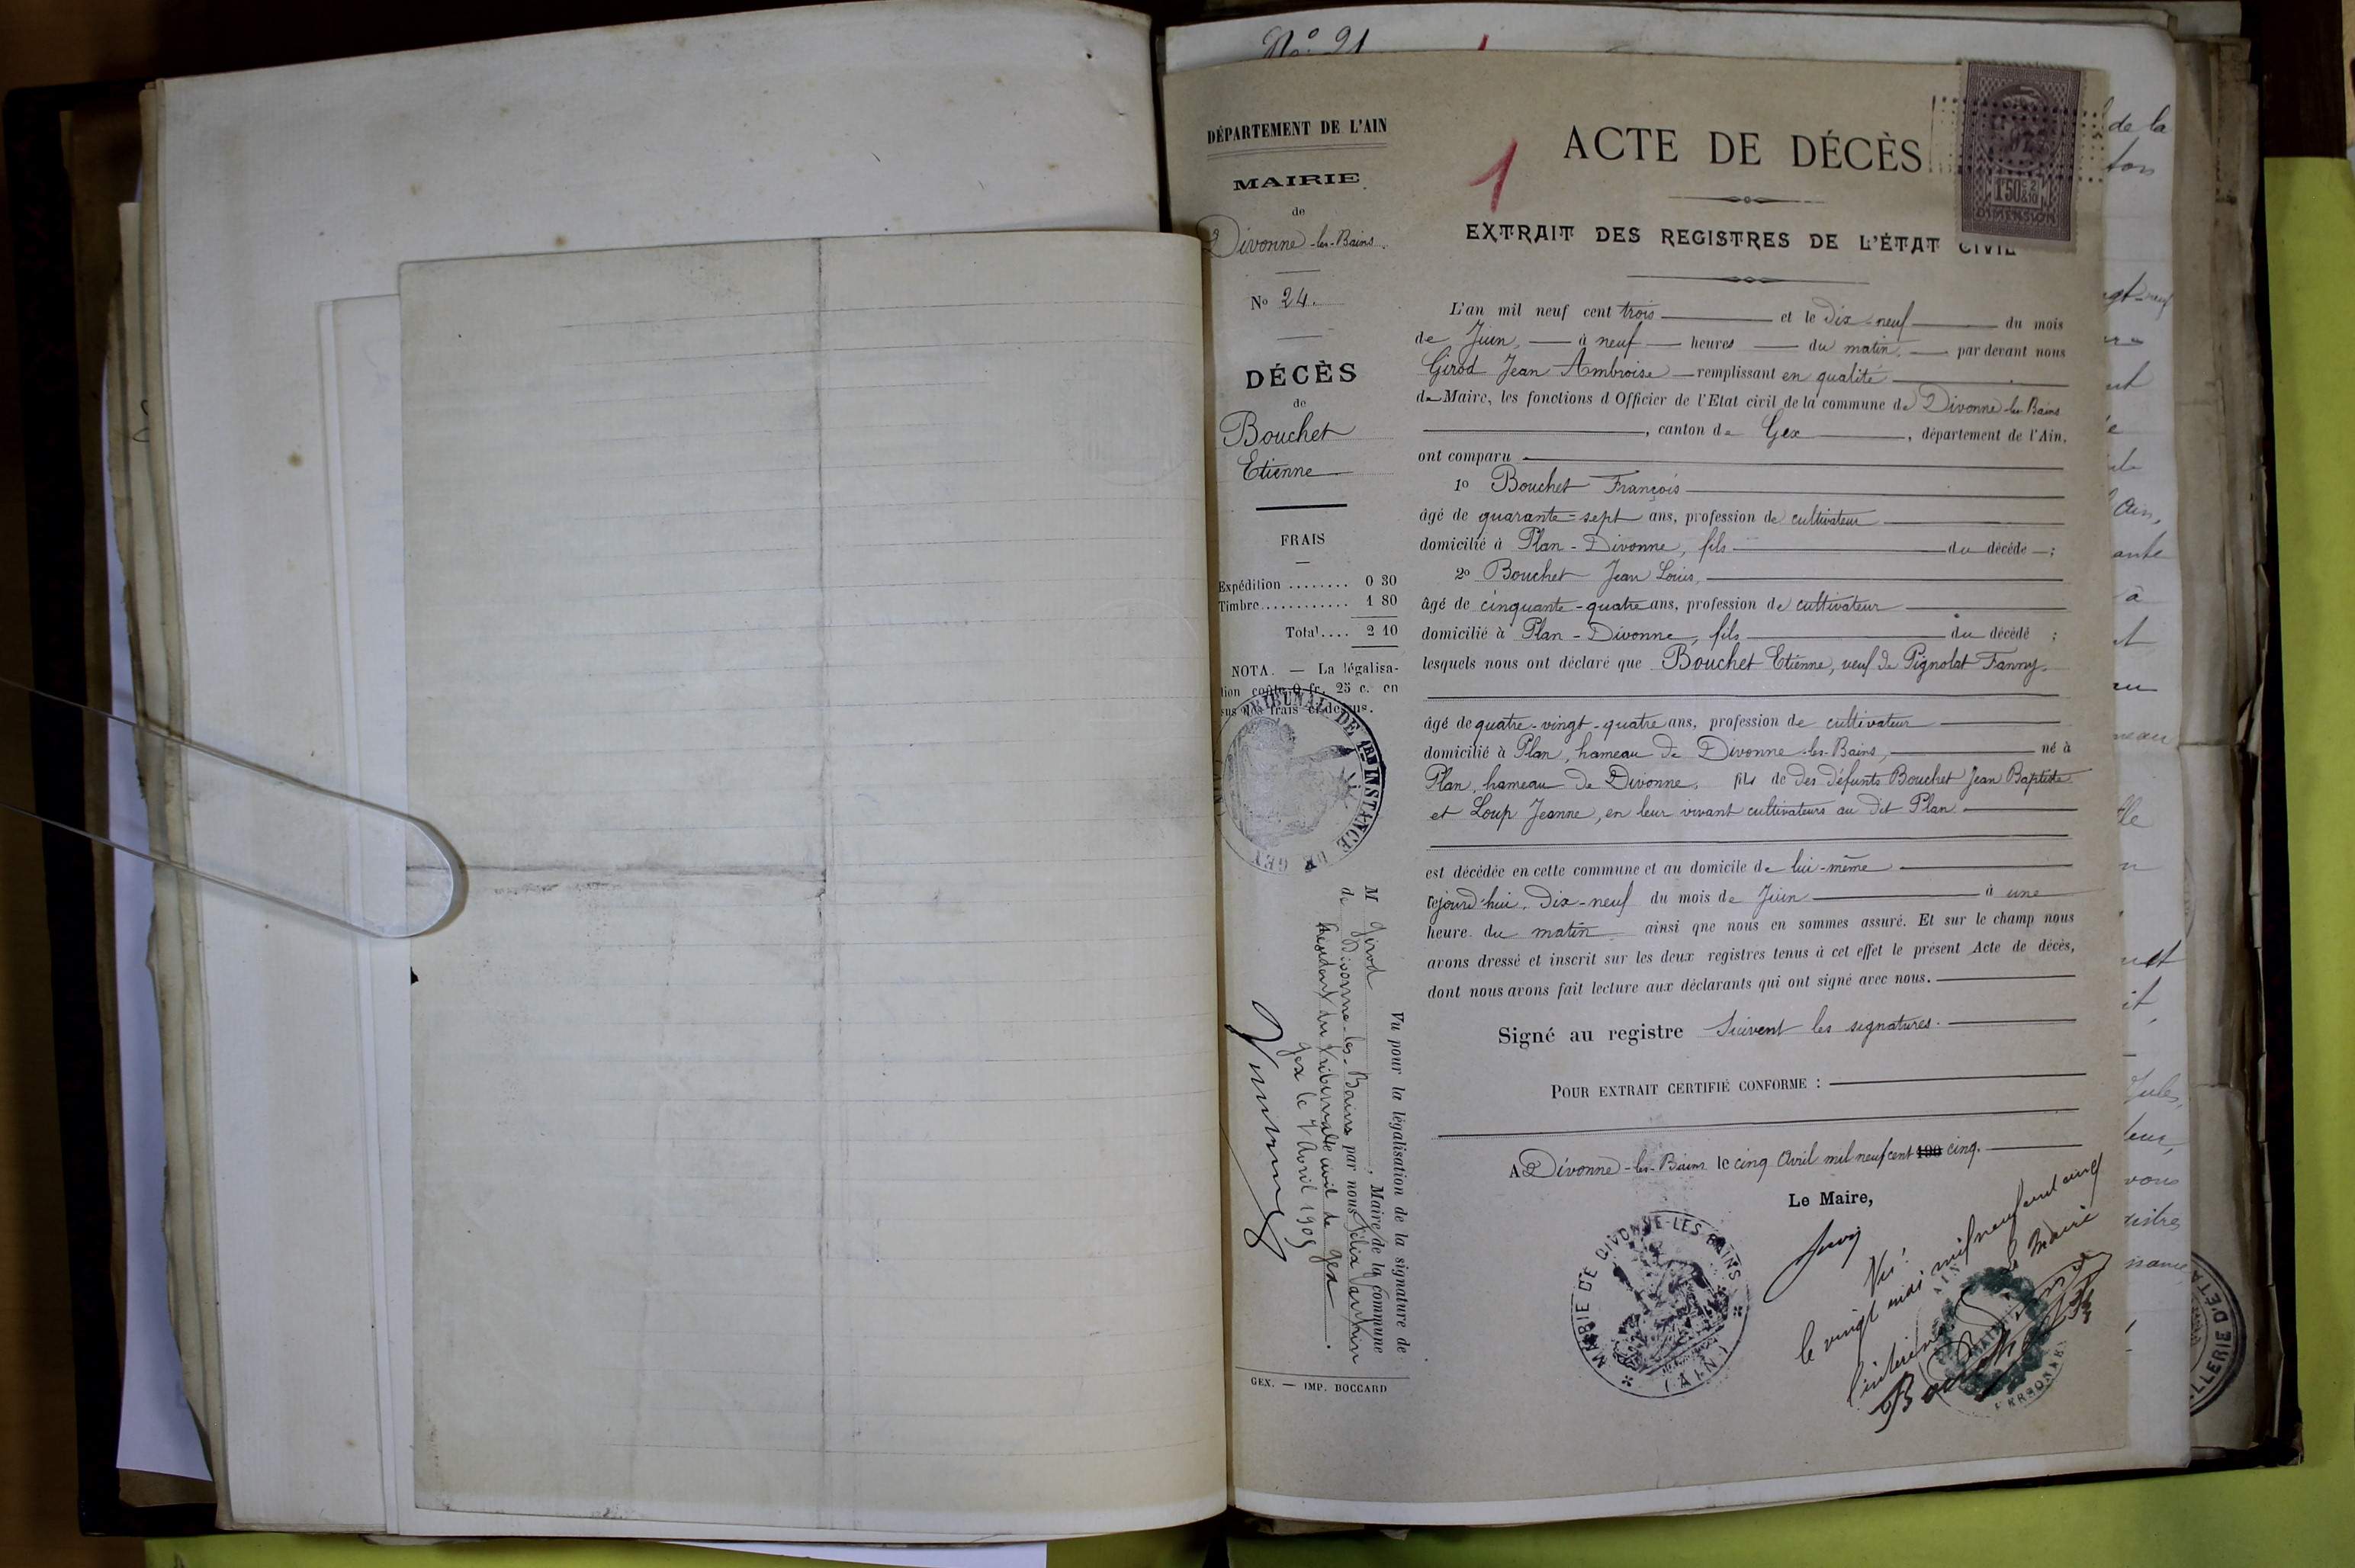 No 21
DÉPARTEMENT DE L'AIN
MAIRIE
de
Divonne-les-Bains.
No 24.
DÉCÈS
de
Bouchet
Etienne
FRAIS
Expédition ........ 0 30
Timbre............ 1 80
Total.... 2 10
NOTA. — La légalisa-
tion coûte 0 fr. 25 c. en
sus des frais ci-dessus.
TRIBUNAL DE 1RE INSTANCE DE GEX
Vu pour la légalisation de la signature de
M Girod, Maire de la commune
de Divonne-les-Bains par nous Félix
Président du Tribunal civil de Gex
Gex le 7 Avril 1905
GEX. — IMP. BOCCARD
1
ACTE DE DÉCÈS
1f50c 2/10
DIMENSION
EXTRAIT DES REGISTRES DE L'ÉTAT CIVIL
L'an mil neuf cent trois et le Dix-neuf du mois
de Juin, à neuf heures du matin, par devant nous
Girod Jean Ambroise remplissant en qualité
de Maire, les fonctions d'Officier de l'Etat civil de la commune de Divonne-les-Bains
, canton de Gex, département de l'Ain,
ont comparu
1o Bouchet François
âgé de quarante-sept ans, profession de cultivateur
domicilié à Plan-Divonne, fils du décédé ;
2o Bouchet Jean Louis,
âgé de cinquante-quatre ans, profession de cultivateur
domicilié à Plan-Divonne, fils du décédé ;
lesquels nous ont déclaré que Bouchet Etienne, veuf de Pignolat Fanny.
âgé de quatre-vingt-quatre ans, profession de cultivateur
domicilié à Plan, hameau de Divonne-les-Bains, né à
Plan, hameau de Divonne, fils de des défunts Bouchet Jean Baptiste
et Loup Jeanne, en leur vivant cultivateurs au dit Plan.
est décédée en cette commune et au domicile de lui-même
cejourd'hui, Dix-neuf du mois de Juin à une
heure du matin ainsi que nous en sommes assuré. Et sur le champ nous
avons dressé et inscrit sur les deux registres tenus à cet effet le présent Acte de décès,
dont nous avons fait lecture aux déclarants qui ont signé avec nous.
Signé au registre Suivent les signatures.
POUR EXTRAIT CERTIFIÉ CONFORME :
A Divonne-les-Bains le cinq Avril mil neuf cent 190 cinq.
Le Maire,
MAIRIE DE DIVONNE-LES-BAINS (AIN)
Vu!
le vingt mai mil neuf cent cinq
le Maire
de la
ton
Ain,
ante
à
Jules,
vous
LLERIE D'ÉTA